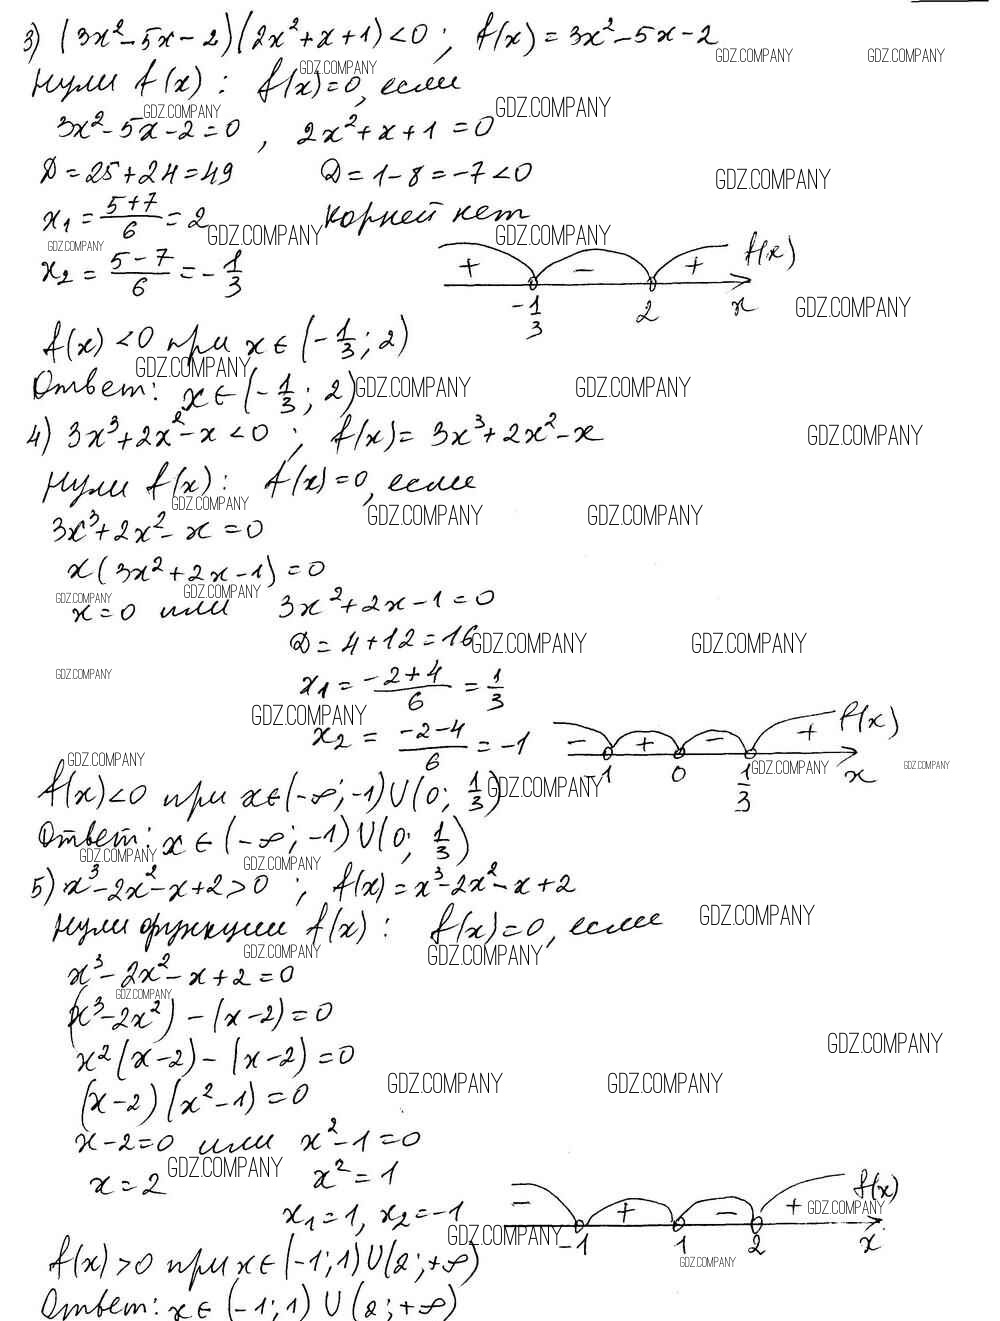 3) (3x²-5x-2)(2x²+x+1)<0; f(x)=3x²-5x-2
GDZ.COMPANY GDZ.COMPANY
Нули f(x): f(x)=0, если
GDZ.COMPANY
GDZ.COMPANY GDZ.COMPANY
3x²-5x-2=0, 2x²+x+1=0
D=25+24=49 D=1-8=-7<0
GDZ.COMPANY
x₁=(5+7)/6=2 корней нет
GDZ.COMPANY GDZ.COMPANY GDZ.COMPANY
x₂=(5-7)/6=-1/3
+ - + f(x)
-1/3 2 x
GDZ.COMPANY
f(x)<0 при x∈(-1/3; 2)
GDZ.COMPANY
Ответ: x∈(-1/3; 2)
GDZ.COMPANY GDZ.COMPANY
4) 3x³+2x²-x<0; f(x)=3x³+2x²-x
GDZ.COMPANY
Нули f(x): f(x)=0, если
GDZ.COMPANY GDZ.COMPANY GDZ.COMPANY
3x³+2x²-x=0
x(3x²+2x-1)=0
GDZ.COMPANY GDZ.COMPANY
x=0 или 3x²+2x-1=0
D=4+12=16
GDZ.COMPANY GDZ.COMPANY
GDZ.COMPANY
x₁=(-2+4)/6=1/3
GDZ.COMPANY
x₂=(-2-4)/6=-1
- + - + f(x)
-1 0 1/3 x
GDZ.COMPANY GDZ.COMPANY GDZ.COMPANY
f(x)<0 при x∈(-∞;-1)U(0; 1/3)
GDZ.COMPANY
Ответ: x∈(-∞;-1)U(0; 1/3)
GDZ.COMPANY GDZ.COMPANY
5) x³-2x²-x+2>0; f(x)=x³-2x²-x+2
GDZ.COMPANY
Нули функции f(x): f(x)=0, если
GDZ.COMPANY GDZ.COMPANY
x³-2x²-x+2=0
GDZ.COMPANY
(x³-2x²)-(x-2)=0
GDZ.COMPANY
x²(x-2)-(x-2)=0
GDZ.COMPANY GDZ.COMPANY
(x-2)(x²-1)=0
x-2=0 или x²-1=0
GDZ.COMPANY
x=2 x²=1
x₁=1, x₂=-1
- + - + f(x)
GDZ.COMPANY
GDZ.COMPANY
-1 1 2 x
GDZ.COMPANY
f(x)>0 при x∈(-1;1)U(2;+∞)
Ответ: x∈(-1;1)U(2;+∞)